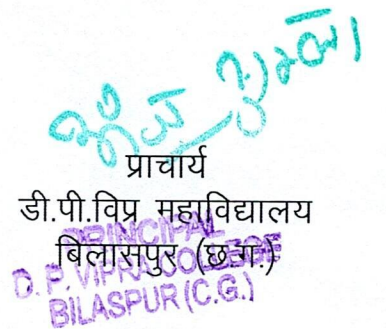 प्राचार्य
डी.पी.विप्र महाविद्यालय
बिलासपुर (छ.ग.)
PRINCIPAL
D. P. VIPRA COLLEGE
BILASPUR (C.G.)